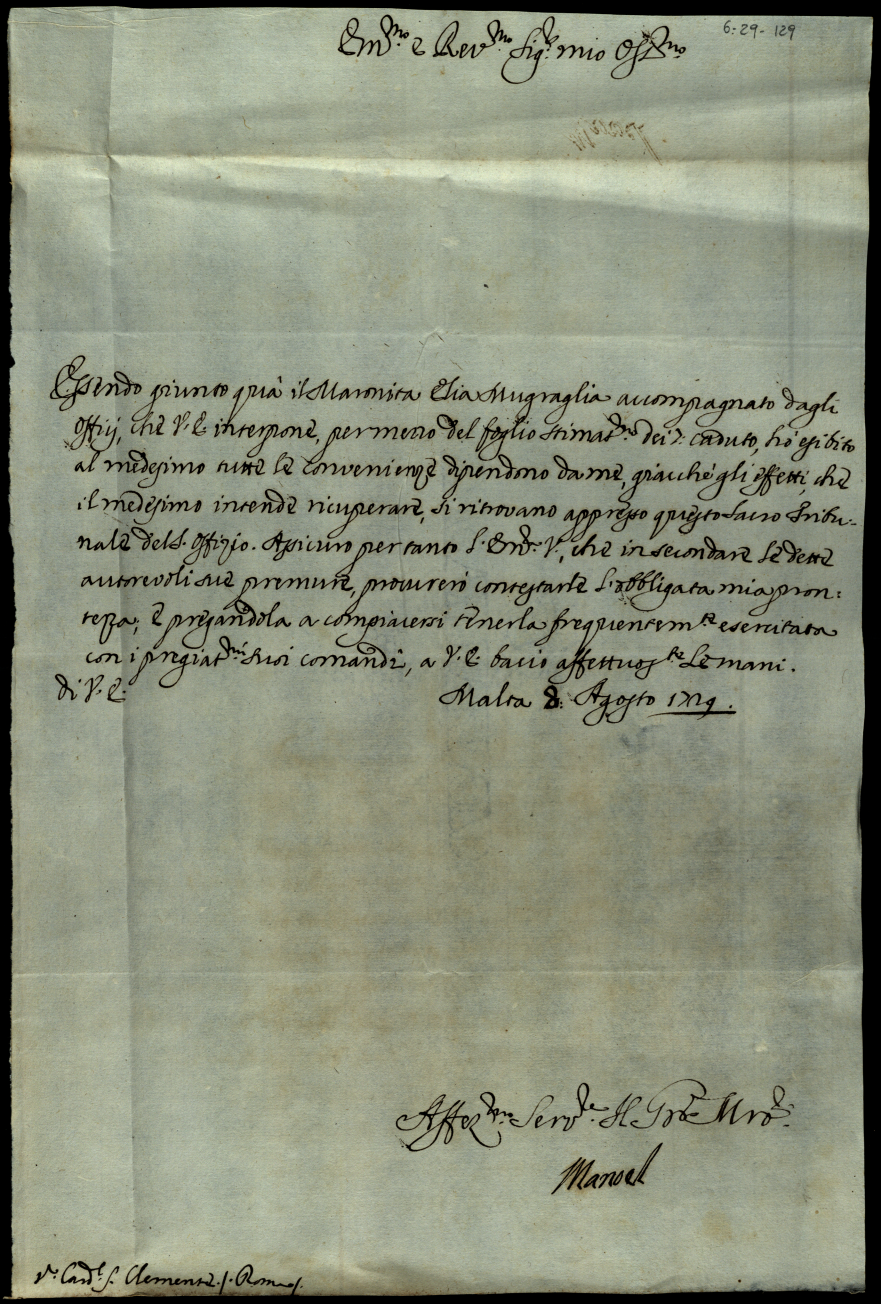 6-29-129
Em.mo e Rev.mo Sig.r mio Oss.mo
Essendo giunto quà il Maronita Elia Mugraglia accompagnato dagli
offitij, che V. E. interpone, per mezzo del foglio stimat.mo dei 7. caduto, hò esibito
al medesimo tutte le convenienze dipendono da me, giacché gli effetti, che
il medesimo intende ricuperare, si ritrovano appresso questo Sacro Tribu-
nale del S. Offizio. Assicuro per tanto l'Em.a V., che in secondare le dette
autorevoli sue premure, procurerò contestarle l'obbligata mia pron-
tezza; e pregandola a compiacersi tenerla frequentem.te esercitata
con i pregiat.mi suoi comandi, a V. E. bacio affettuos.te le mani.
di V. E. Malta 8. Agosto 1729.
Affez.mo Serv.re Il Gr. Mro.
Manoel
S.r Card.l S. Clemente /. Roma /.